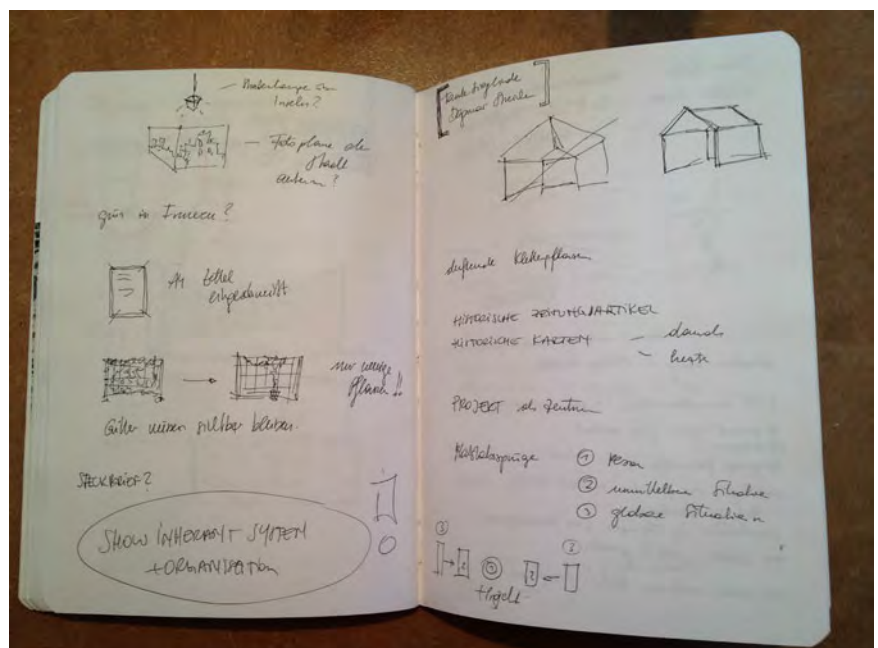 Inseln?
Fotoplane als
Stadt
grün im Inneren?
A4 Zettel
nur wenige
Pflanzen!!
Gitter müssen sichtbar bleiben.
STECKBRIEF?
SHOW INHERANT SYSTEM
+ORGANISATION
Dagmar
duftende Kletterpflanzen
HISTORISCHE ZEITUNGSARTIKEL
HISTORISCHE KARTEN - damals
- heute
PROJEKT als Zentrum
Maßstabsprünge ①
② unmittelbare Situation
③ globale Situation
③ ③
2 ① 2